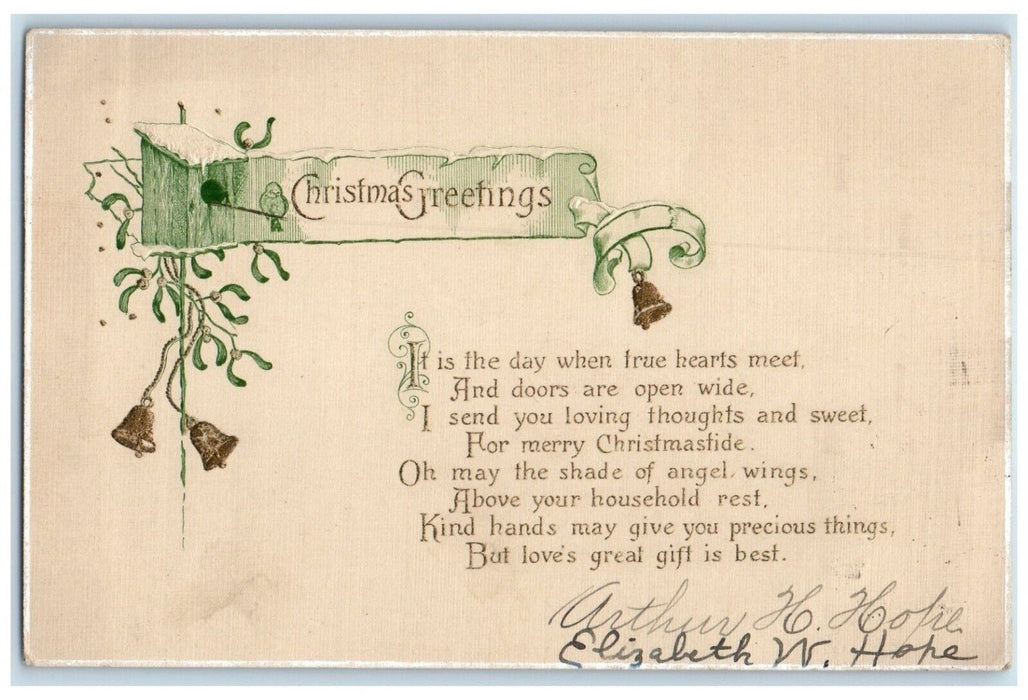 Christmas Greetings
It is the day when true hearts meet,
And doors are open wide,
I send you loving thoughts and sweet,
For merry Christmastide.
Oh may the shade of angel wings,
Above your household rest,
Kind hands may give you precious things,
But love's great gift is best.
Arthur H. Hope
Elizabeth W. Hope